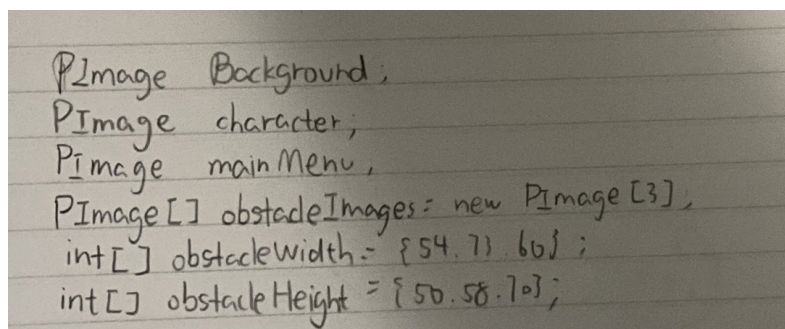 PImage Background;
PImage character;
PImage mainMenu,
PImage[] obstacleImages = new PImage[3],
int[] obstacleWidth = {54. 73 60} ;
int[] obstacleHeight = {50.58.70};